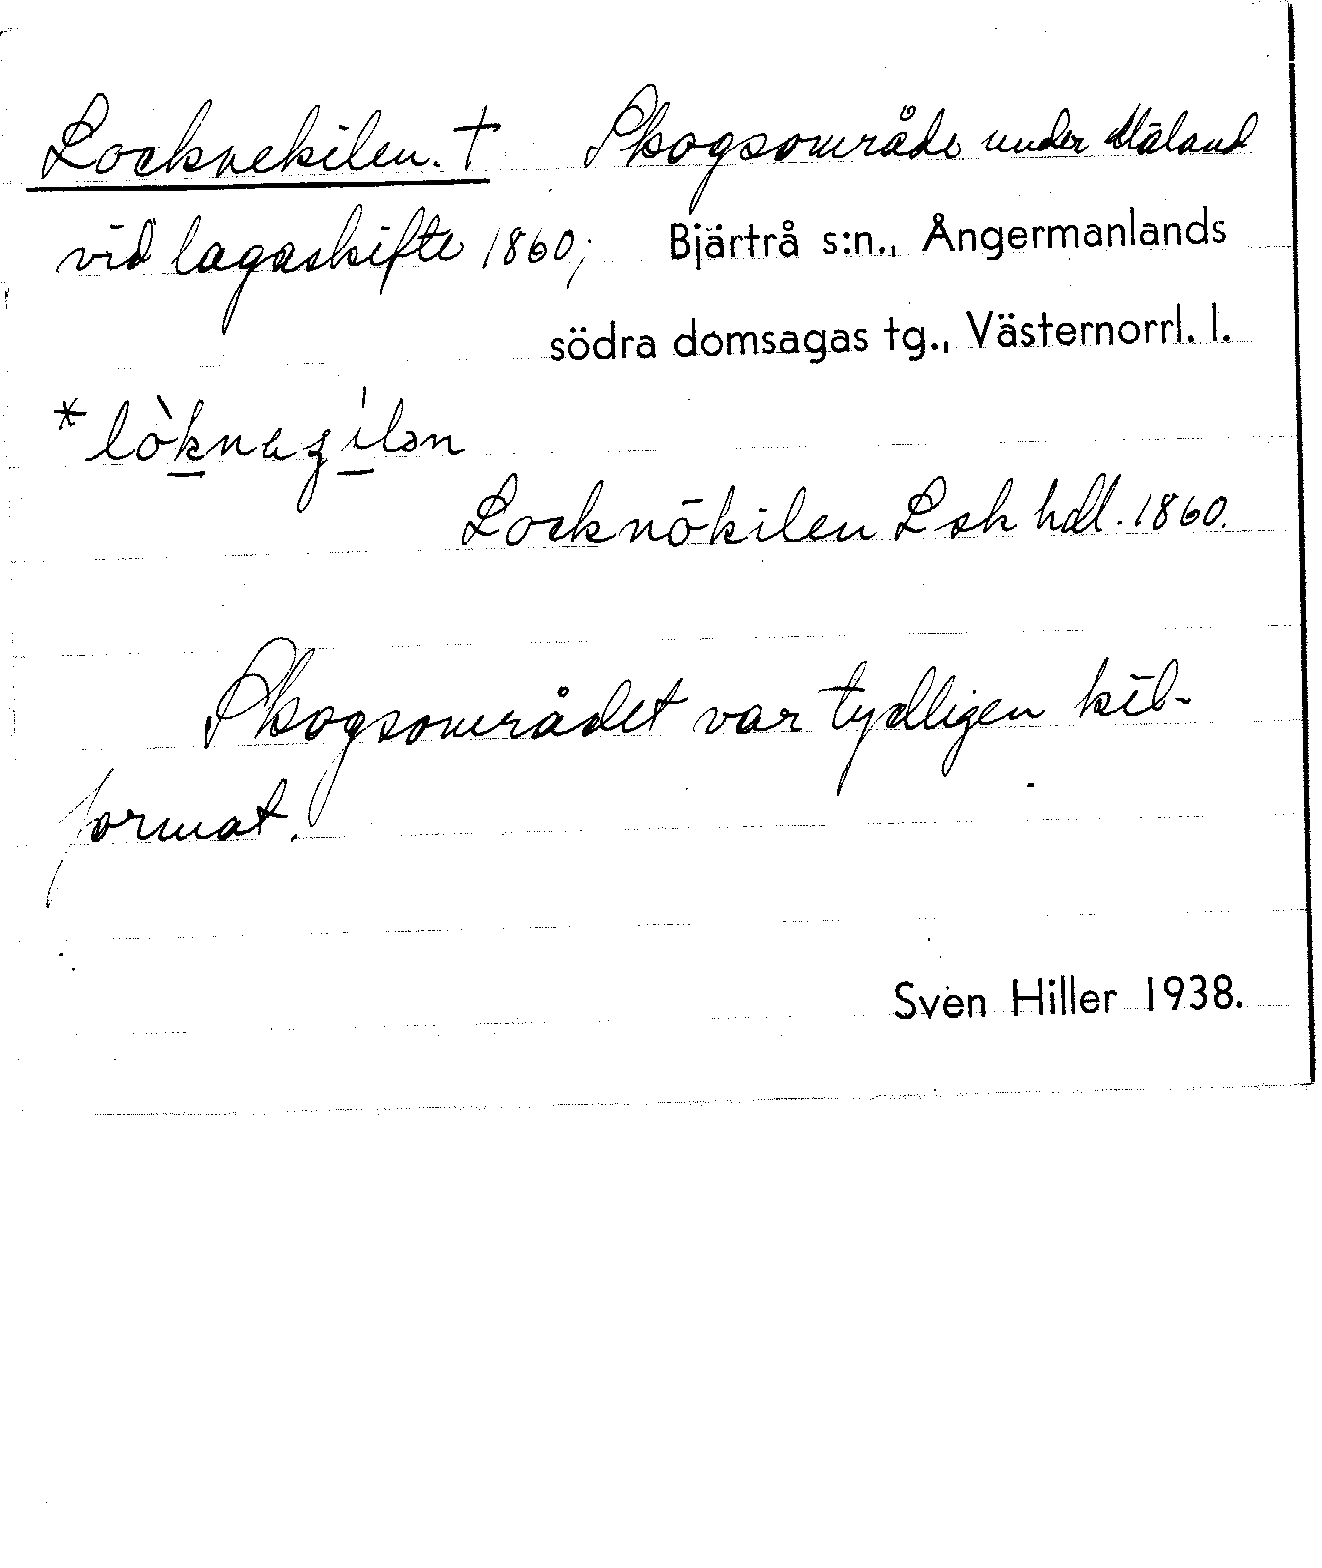 Locknekilen. † Skogsområde under Mäland
vid lagaskifte 1860; Bjärtrå s:n., Ångermanlands
södra domsagas tg., Västernorrl. l.
Locknökilen Lsk hdl. 1860.
Skogsområdet var tydligen kil-
format.
Sven Hiller 1938.